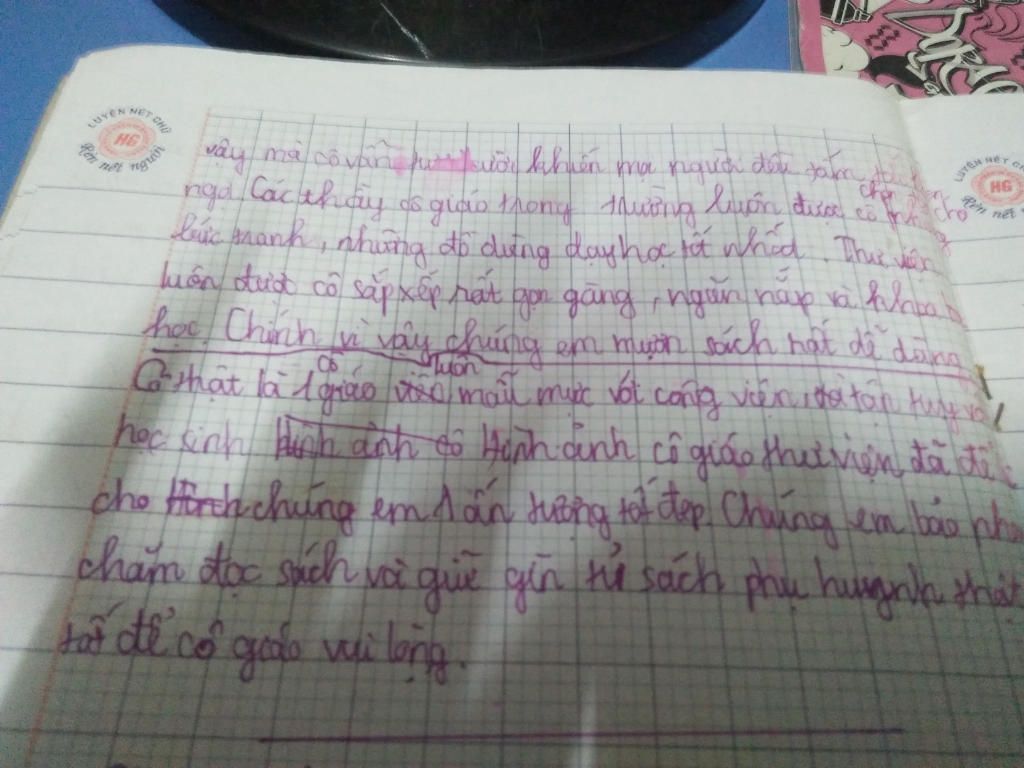 LUYỆN NÉT CHỮ
HG
Rèn nết người
LUYỆN NÉT CH
HG
Rèn nét n
vậy mà cô vẫn khiến mọi người đều
ngơ Các thầy cô giáo trong trường luôn được cô chọn cho
bức tranh, những đồ dùng dạy học tốt nhất. Thư viện
luôn được cô sắp xếp rất gọn gàng, ngăn nắp và khoa
học. Chính vì vậy chúng em mượn sách rất dễ dàng
Cô thật là 1 cô giáo luôn mẫu mực với công việc, tận tuỵ
học sinh Hình ảnh cô Hình ảnh cô giáo thư viện đã để
cho chúng em 1 ấn tượng tốt đẹp. Chúng em bảo nha
chăm đọc sách và giữ gìn tủ sách phụ huynh thật
tốt để cô giáo vui lòng.